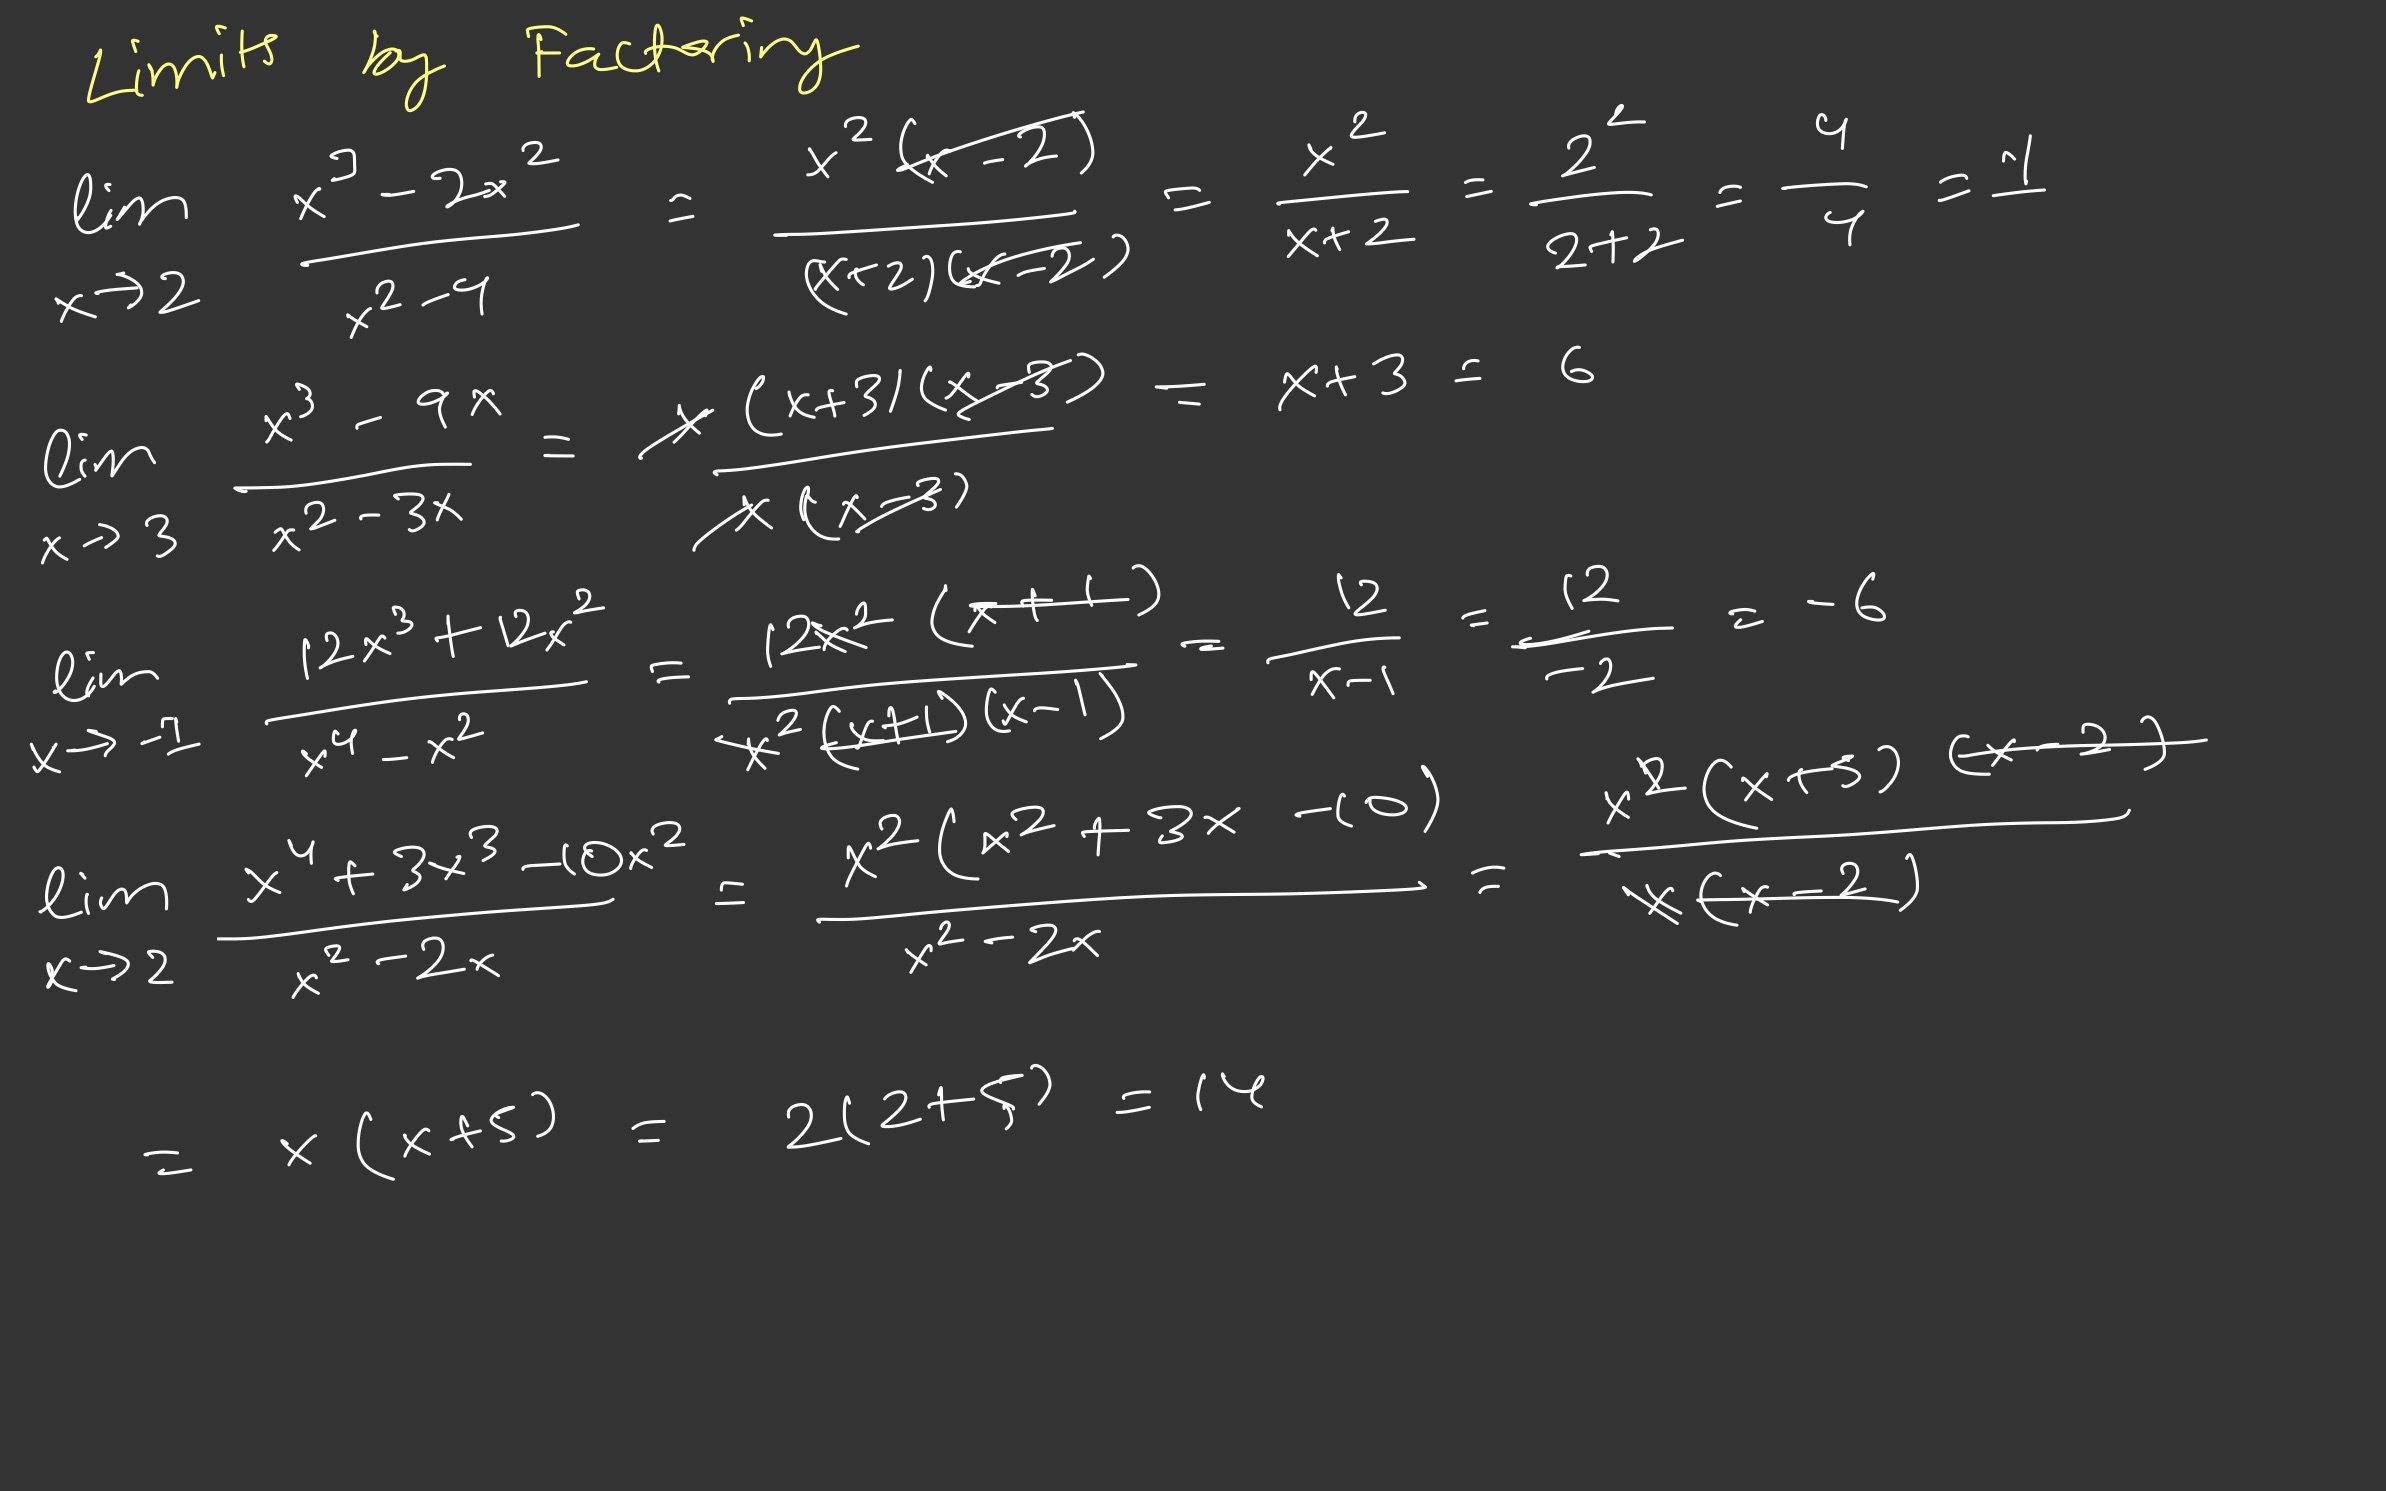 Limits by Factoring
lim x→2 (x³ - 2x²)/(x² - 4) = (x²(x - 2))/((x+2)(x-2)) = x²/(x+2) = 2²/(2+2) = 4/4 = 1
lim x→3 (x³ - 9x)/(x² - 3x) = (x(x+3)(x-3))/(x(x-3)) = x+3 = 6
lim x→-1 (12x³ + 12x²)/(x⁴ - x²) = (12x²(x+1))/(x²(x+1)(x-1)) = 12/(x-1) = 12/-2 = -6
lim x→2 (x⁴ + 3x³ - 10x²)/(x² - 2x) = (x²(x² + 3x - 10))/(x² - 2x) = (x²(x+5)(x-2))/(x(x-2))
= x(x+5) = 2(2+5) = 14